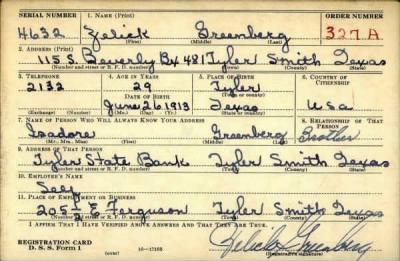 SERIAL NUMBER 1. NAME (Print) ORDER NUMBER
4632 Zelick Greenberg 327A
(First) (Middle) (Last)
2. ADDRESS (Print)
115 S. Beverly Bx 481 Tyler Smith Texas
(Number and street or R. F. D. number) (Town) (County) (State)
3. TELEPHONE 4. AGE IN YEARS 5. PLACE OF BIRTH 6. COUNTRY OF CITIZENSHIP
2132 29 Tyler
DATE OF BIRTH (Town or county)
June 26 1913 Texas USA
(Exchange) (Number) (Mo.) (Day) (Yr.) (State or country)
7. NAME OF PERSON WHO WILL ALWAYS KNOW YOUR ADDRESS 8. RELATIONSHIP OF THAT PERSON
Isadore Greenberg Brother
(Mr., Mrs., Miss) (First) (Middle) (Last)
9. ADDRESS OF THAT PERSON
Tyler State Bank Tyler Smith Texas
(Number and street or R. F. D. number) (Town) (County) (State)
10. EMPLOYER'S NAME
Self
11. PLACE OF EMPLOYMENT OR BUSINESS
205½ E. Ferguson Tyler Smith Texas
(Number and street or R. F. D. number) (Town) (County) (State)
I AFFIRM THAT I HAVE VERIFIED ABOVE ANSWERS AND THAT THEY ARE TRUE.
REGISTRATION CARD
D. S. S. Form 1 (over) Zelick Greenberg
(Registrant's signature)